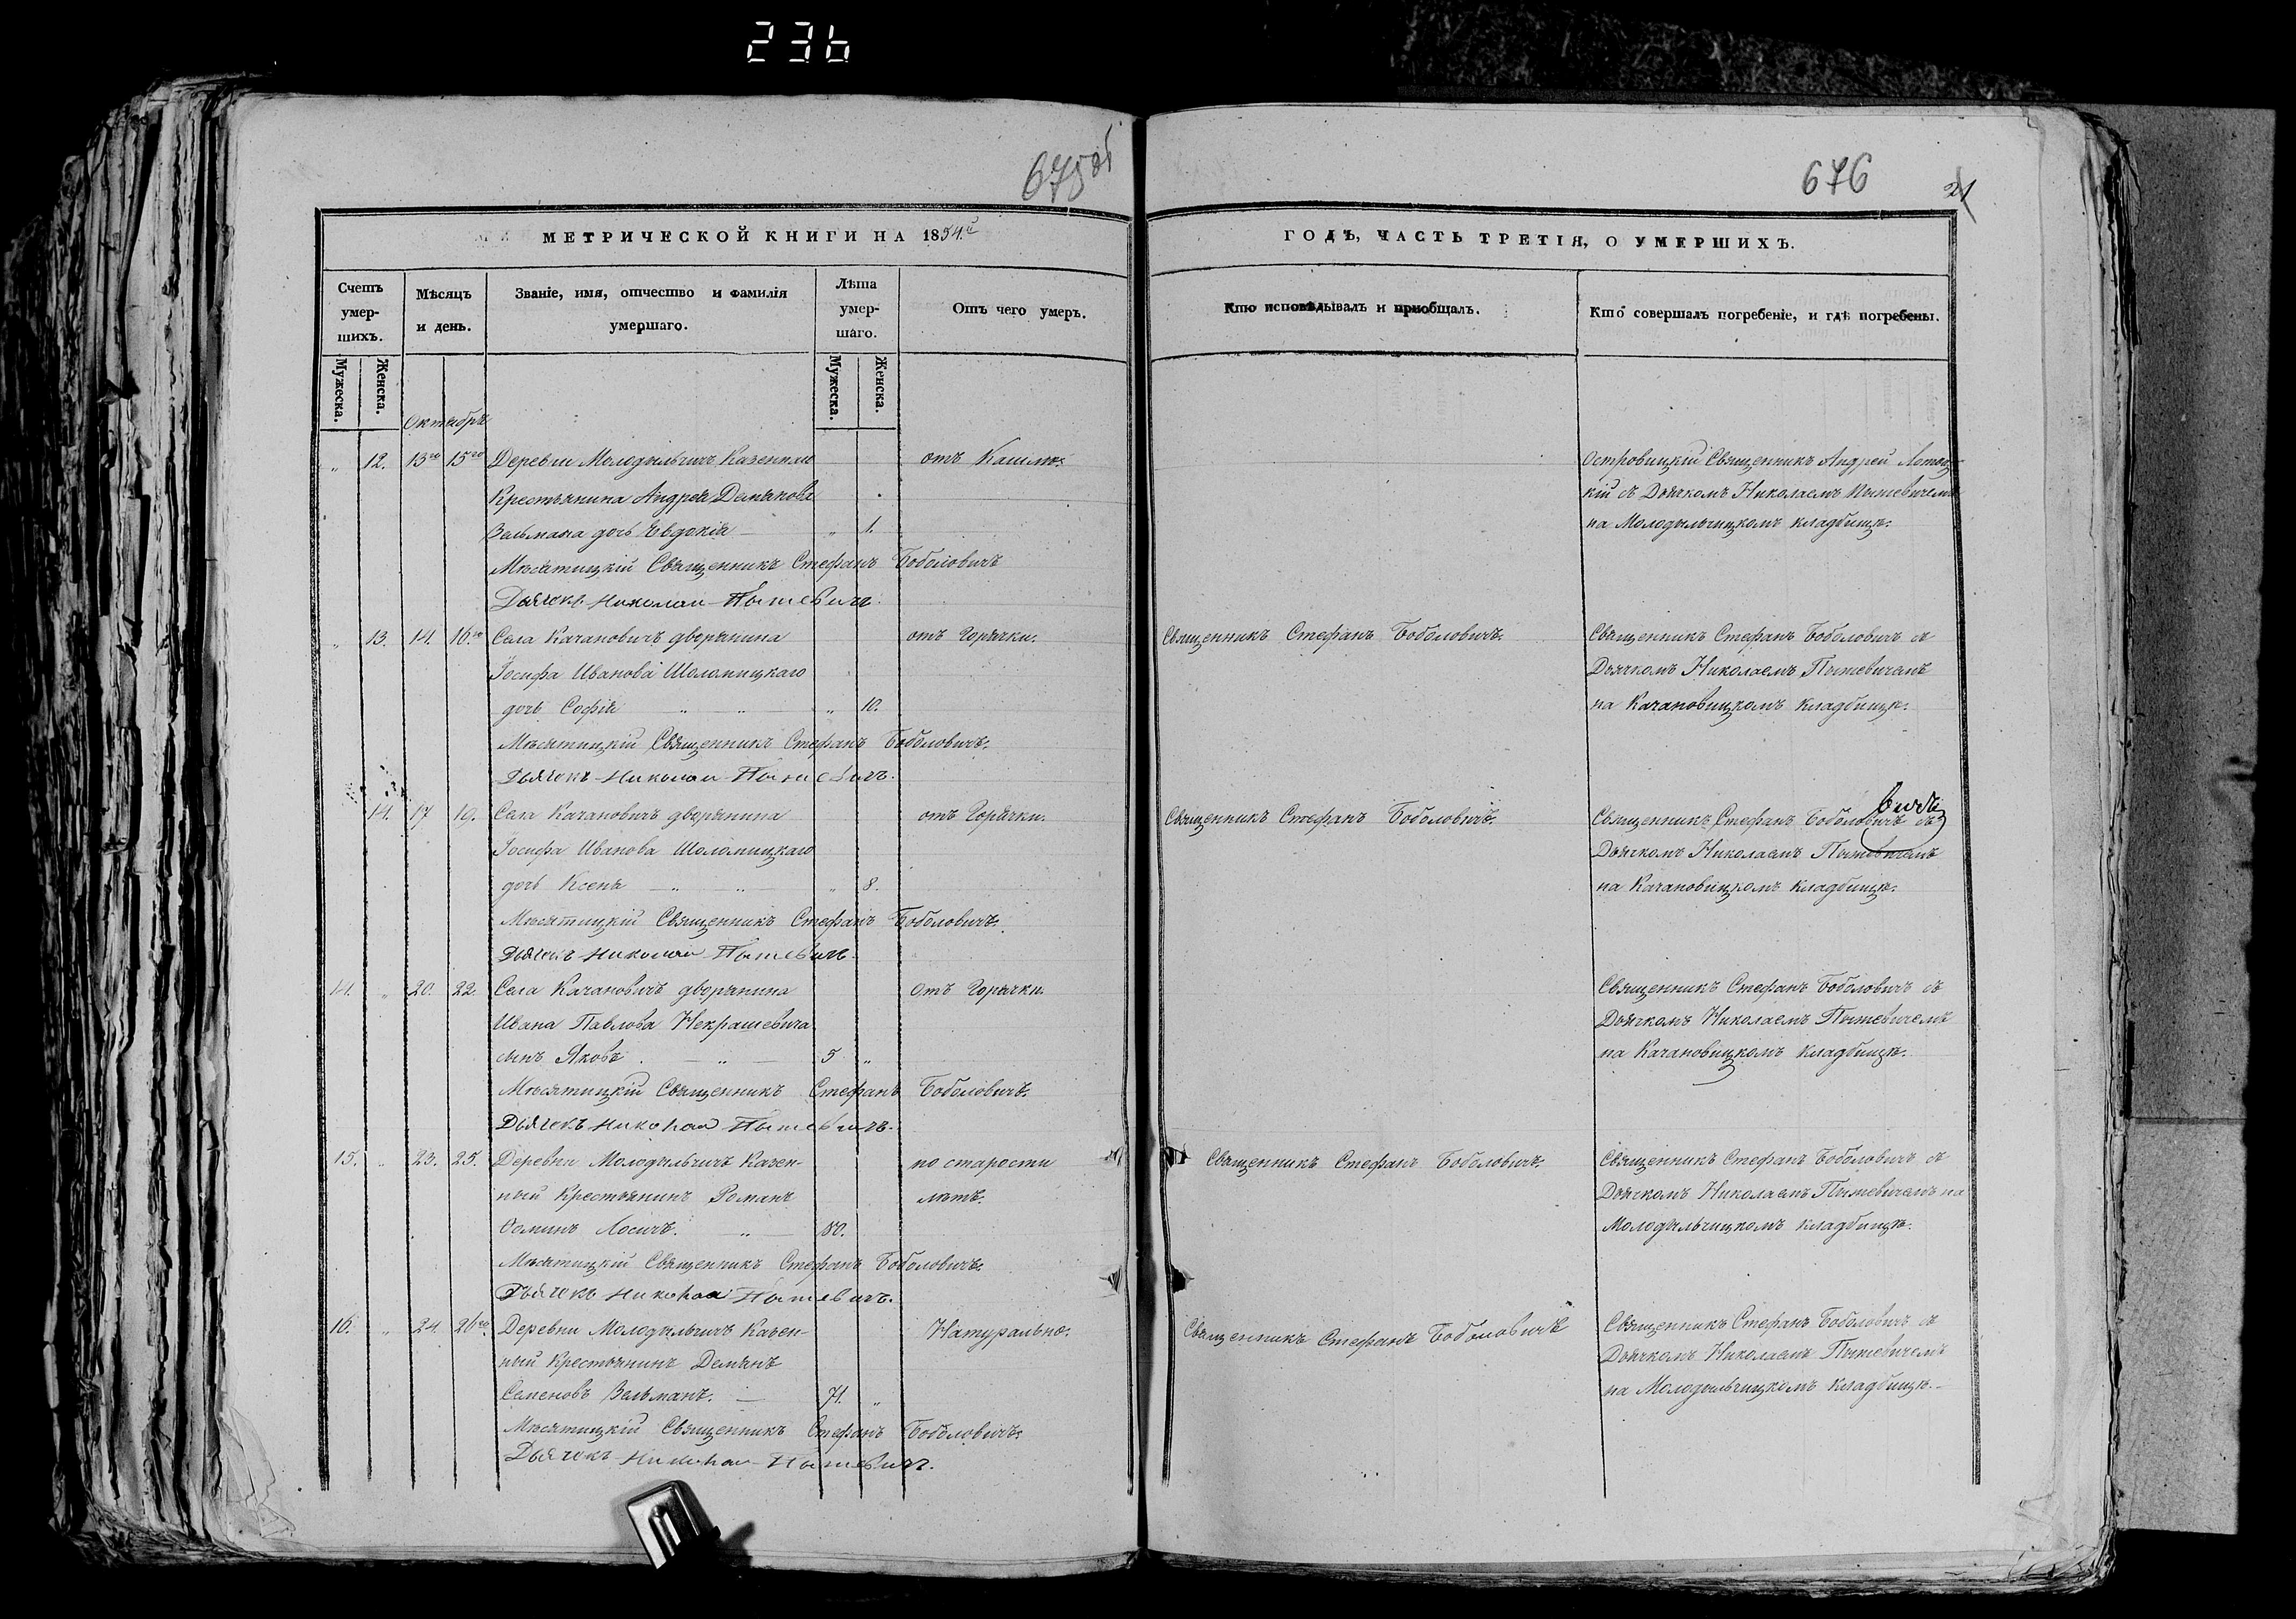 236
675 об
676
21
МЕТРИЧЕСКОЙ КНИГИ НА 1854й
ГОДЪ, ЧАСТЬ ТРЕТІЯ, О УМЕРШИХЪ.
Счетъ умер-шихъ.
Мѣсяцъ и день.
Званіе, имя, отчество и фамилія умершаго.
Лѣта умер-шаго.
Отъ чего умеръ.
Кто исповѣдывалъ и пріобщалъ.
Кто совершалъ погребеніе, и гдѣ погребены.
Мужеска. Женска. Мужеска. Женска.
Октябрь
" 12. 13го 15го Деревни Молодыльчичъ Казеннаго отъ Кашлю.
Крестьянина Андрея Демьянова
Вальмана дочь Евдокія " 1.
Мѣсятицкій Священникъ Стефанъ Боболовичъ
Дьячекъ Николай Пытевичъ.
Островицкій Священникъ Андрей
кій съ Дьячкомъ Николаемъ Пытевичемъ
на Молодыльчицкомъ кладбищѣ.
" 13. 14. 16го Села Качановичъ дворянина отъ Горячки. Священникъ Стефанъ Боболовичъ.
Іосифа Иванова Шоломицкаго
дочь Софія " " " 10.
Мѣсятицкій Священникъ Стефанъ Боболовичъ.
Дьячекъ Николай Пытевичъ.
Священникъ Стефанъ Боболовичъ съ
Дьячкомъ Николаемъ Пытевичемъ
на Качановицкомъ кладбищѣ.
14. 17 19. Села Качановичъ дворянина отъ Горячки. Священникъ Стефанъ Боболовичъ.
Іосифа Иванова Шоломицкаго
дочь Ксенія " " " 8.
Мѣсятицкій Священникъ Стефанъ Боболовичъ.
Дьячекъ Николай Пытевичъ.
вичъ
Священникъ Стефанъ Боболовичъ съ
Дьячкомъ Николаемъ Пытевичемъ
на Качановицкомъ кладбищѣ.
14. " 20. 22. Села Качановичъ дворянина Отъ Горячки.
Ивана Павлова Некрашевича
сынъ Яковъ. " 5 "
Мѣсятицкій Священникъ Стефанъ Боболовичъ.
Дьячекъ Николай Пытевичъ.
Священникъ Стефанъ Боболовичъ съ
Дьячкомъ Николаемъ Пытевичемъ
на Качановицкомъ кладбищѣ.
15. " 23. 25. Деревни Молодыльчичъ Казен- по старости Священникъ Стефанъ Боболовичъ.
ный Крестьянинъ Романъ лѣтъ.
Лосичъ. " 80.
Мѣсятицкій Священникъ Стефанъ Боболовичъ.
Дьячекъ Николай Пытевичъ.
Священникъ Стефанъ Боболовичъ съ
Дьячкомъ Николаемъ Пытевичемъ на
Молодыльчицкомъ кладбищѣ.
16. " 24. 26го. Деревни Молодыльчичъ Казен- Натурально. Священникъ Стефанъ Боболовичъ
ный Крестьянинъ Демьянъ
Семеновъ Вальманъ. 71. "
Мѣсятицкій Священникъ Стефанъ Боболовичъ.
Дьячекъ Николай Пытевичъ.
Священникъ Стефанъ Боболовичъ съ
Дьячкомъ Николаемъ Пытевичемъ
на Молодыльчицкомъ кладбищѣ.